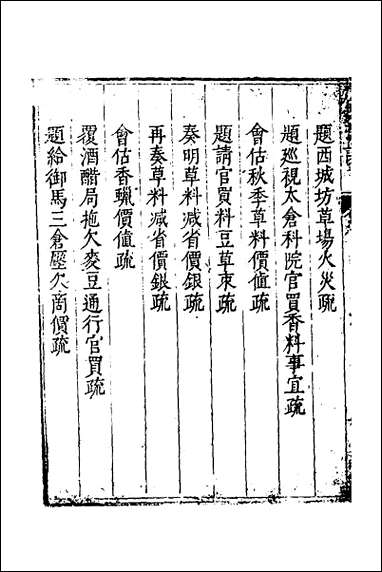 題西城坊草場火災疏
題巡視太倉科院官買香料事宜疏
會估秋季草料價值疏
題請官買料豆草束疏
奏明草料減省價銀疏
再奏草料减省價銀疏
會估香蠟價值疏
覆酒醋局拖欠麥豆通行官買疏
題給御馬三倉壓欠商價疏